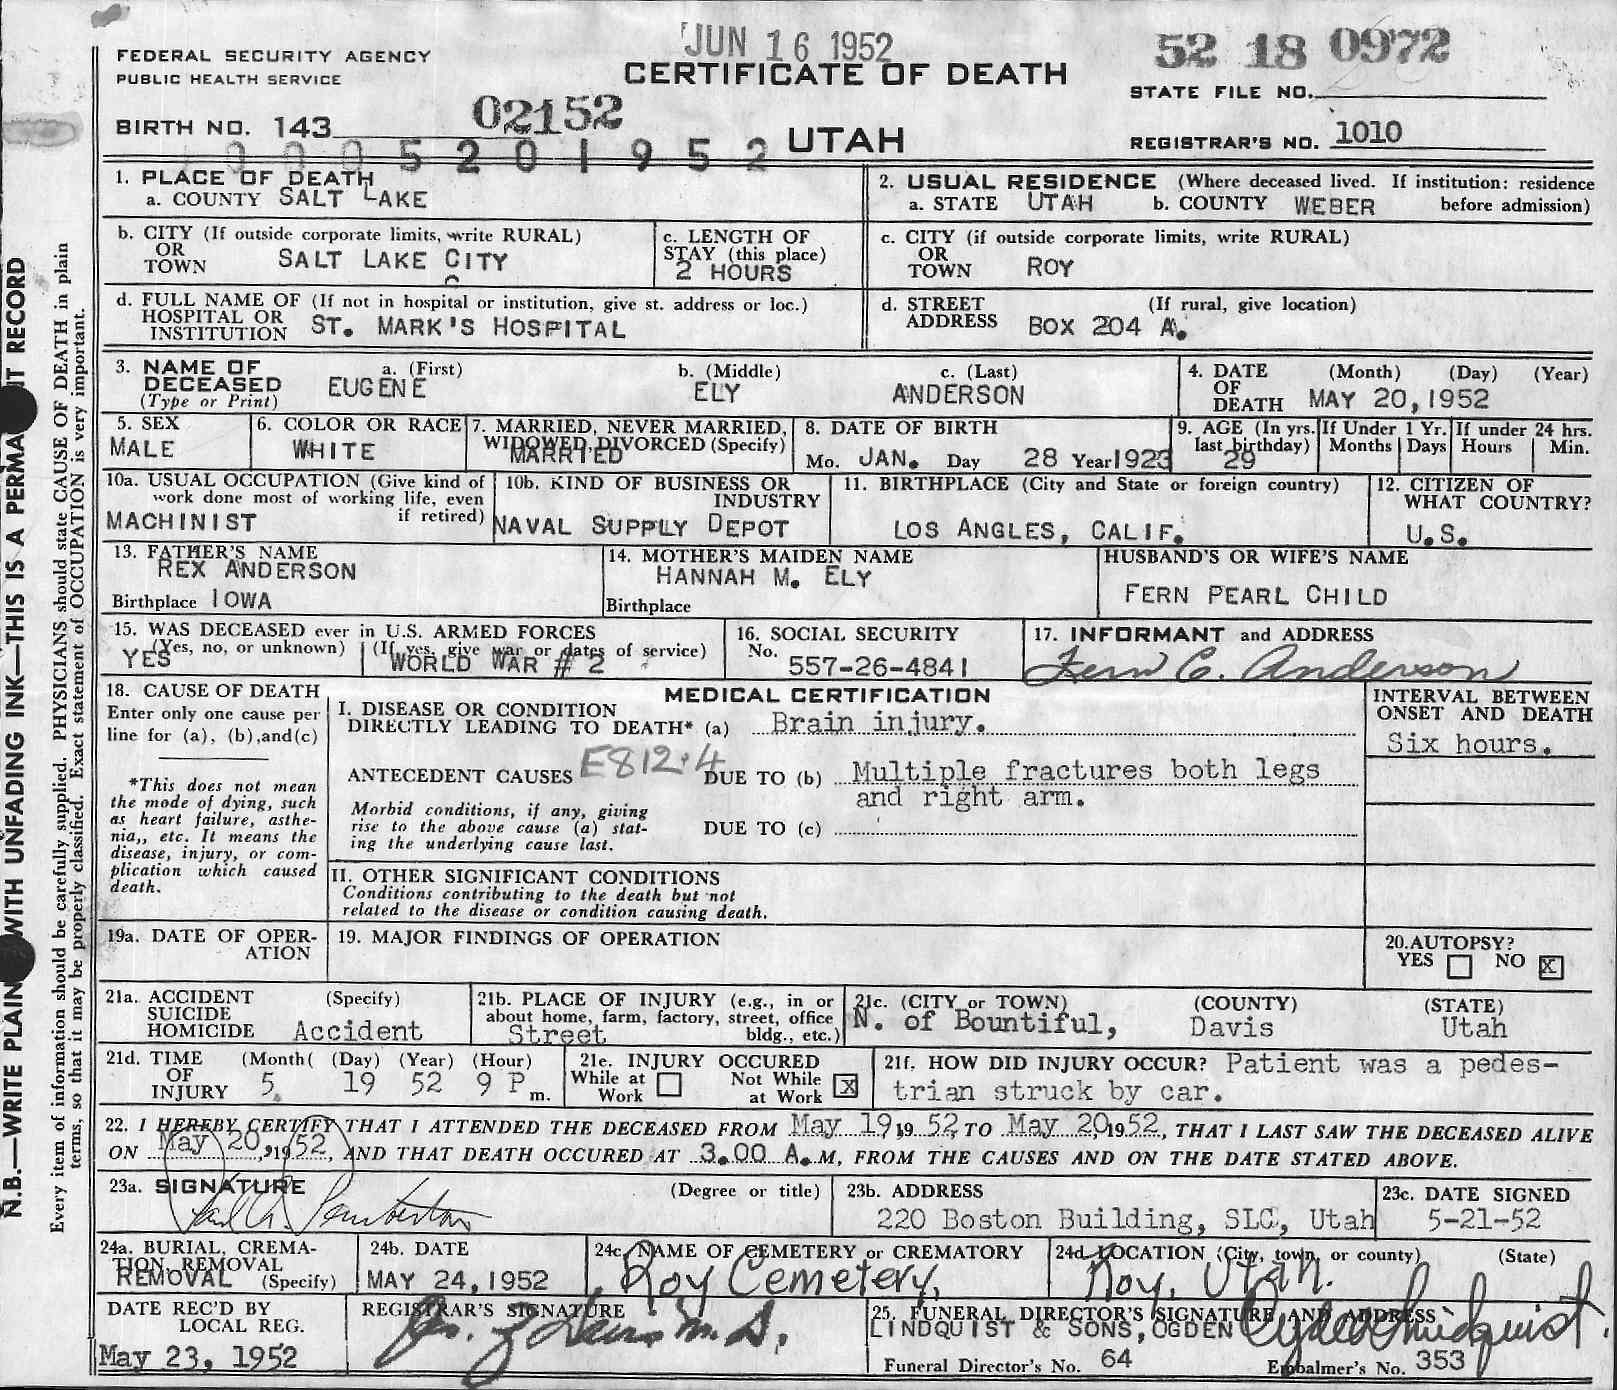 JUN 16 1952
52 18 0972
FEDERAL SECURITY AGENCY
PUBLIC HEALTH SERVICE
CERTIFICATE OF DEATH
STATE FILE NO.
BIRTH NO. 143
02152
UTAH
REGISTRAR'S NO. 1010
0005201952
1. PLACE OF DEATH
a. COUNTY SALT LAKE
2. USUAL RESIDENCE (Where deceased lived. If institution: residence before admission)
a. STATE UTAH b. COUNTY WEBER
b. CITY (If outside corporate limits, write RURAL)
OR
TOWN SALT LAKE CITY
c. LENGTH OF
STAY (this place)
2 HOURS
c. CITY (if outside corporate limits, write RURAL)
OR
TOWN ROY
d. FULL NAME OF (If not in hospital or institution, give st. address or loc.)
HOSPITAL OR
INSTITUTION ST. MARK'S HOSPITAL
d. STREET (If rural, give location)
ADDRESS BOX 204 A.
3. NAME OF
DECEASED
(Type or Print)
a. (First) EUGENE
b. (Middle) ELY
c. (Last) ANDERSON
4. DATE (Month) (Day) (Year)
OF
DEATH MAY 20, 1952
5. SEX
MALE
6. COLOR OR RACE
WHITE
7. MARRIED, NEVER MARRIED,
WIDOWED, DIVORCED (Specify)
MARRIED
8. DATE OF BIRTH
Mo. JAN. Day 28 Year 1923
9. AGE (In yrs.
last birthday)
29
If Under 1 Yr.
Months Days
If under 24 hrs.
Hours Min.
10a. USUAL OCCUPATION (Give kind of
work done most of working life, even
if retired)
MACHINIST
10b. KIND OF BUSINESS OR
INDUSTRY
NAVAL SUPPLY DEPOT
11. BIRTHPLACE (City and State or foreign country)
LOS ANGLES, CALIF.
12. CITIZEN OF
WHAT COUNTRY?
U.S.
13. FATHER'S NAME
REX ANDERSON
Birthplace IOWA
14. MOTHER'S MAIDEN NAME
HANNAH M. ELY
Birthplace
HUSBAND'S OR WIFE'S NAME
FERN PEARL CHILD
15. WAS DECEASED ever in U.S. ARMED FORCES
(Yes, no, or unknown) (If yes, give war or dates of service)
YES WORLD WAR # 2
16. SOCIAL SECURITY
No. 557-26-4841
17. INFORMANT and ADDRESS
Fern C. Anderson
18. CAUSE OF DEATH
Enter only one cause per
line for (a), (b), and (c)
*This does not mean
the mode of dying, such
as heart failure, asthe-
nia,, etc. It means the
disease, injury, or com-
plication which caused
death.
MEDICAL CERTIFICATION
I. DISEASE OR CONDITION
DIRECTLY LEADING TO DEATH* (a) Brain injury.
ANTECEDENT CAUSES E812.4 DUE TO (b) Multiple fractures both legs
and right arm.
Morbid conditions, if any, giving
rise to the above cause (a) stat-
ing the underlying cause last.
DUE TO (c)
INTERVAL BETWEEN
ONSET AND DEATH
Six hours.
II. OTHER SIGNIFICANT CONDITIONS
Conditions contributing to the death but not
related to the disease or condition causing death.
19a. DATE OF OPER-
ATION
19. MAJOR FINDINGS OF OPERATION
20. AUTOPSY?
YES NO X
21a. ACCIDENT (Specify)
SUICIDE
HOMICIDE Accident
21b. PLACE OF INJURY (e.g., in or
about home, farm, factory, street, office
bldg., etc.)
Street
21c. (CITY or TOWN) (COUNTY) (STATE)
N. of Bountiful, Davis Utah
21d. TIME (Month( (Day) (Year) (Hour)
OF
INJURY 5. 19 52 9 P m.
21e. INJURY OCCURED
While at Work Not While at Work X
21f. HOW DID INJURY OCCUR? Patient was a pedes-
trian struck by car.
22. I HEREBY CERTIFY THAT I ATTENDED THE DECEASED FROM May 19, 19 52, TO May 20, 1952, THAT I LAST SAW THE DECEASED ALIVE
ON May 20, 1952, AND THAT DEATH OCCURED AT 3.00 A.M, FROM THE CAUSES AND ON THE DATE STATED ABOVE.
23a. SIGNATURE (Degree or title)
Pemberton
23b. ADDRESS
220 Boston Building, SLC, Utah
23c. DATE SIGNED
5-21-52
24a. BURIAL, CREMA-
TION, REMOVAL
REMOVAL (Specify)
24b. DATE
MAY 24, 1952
24c. NAME OF CEMETERY or CREMATORY
Roy Cemetery,
24d. LOCATION (City, town, or county) (State)
Roy, Utah.
DATE REC'D BY
LOCAL REG.
May 23, 1952
REGISTRAR'S SIGNATURE
M.D.
25. FUNERAL DIRECTOR'S SIGNATURE AND ADDRESS
LINDQUIST & SONS, OGDEN Lindquist.
Funeral Director's No. 64
Embalmer's No. 353
N.B.—WRITE PLAIN WITH UNFADING INK—THIS IS A PERMA T RECORD
Every item of information should be carefully supplied. PHYSICIANS should state CAUSE OF DEATH in plain
terms, so that it may be properly classified. Exact statement of OCCUPATION is very important.